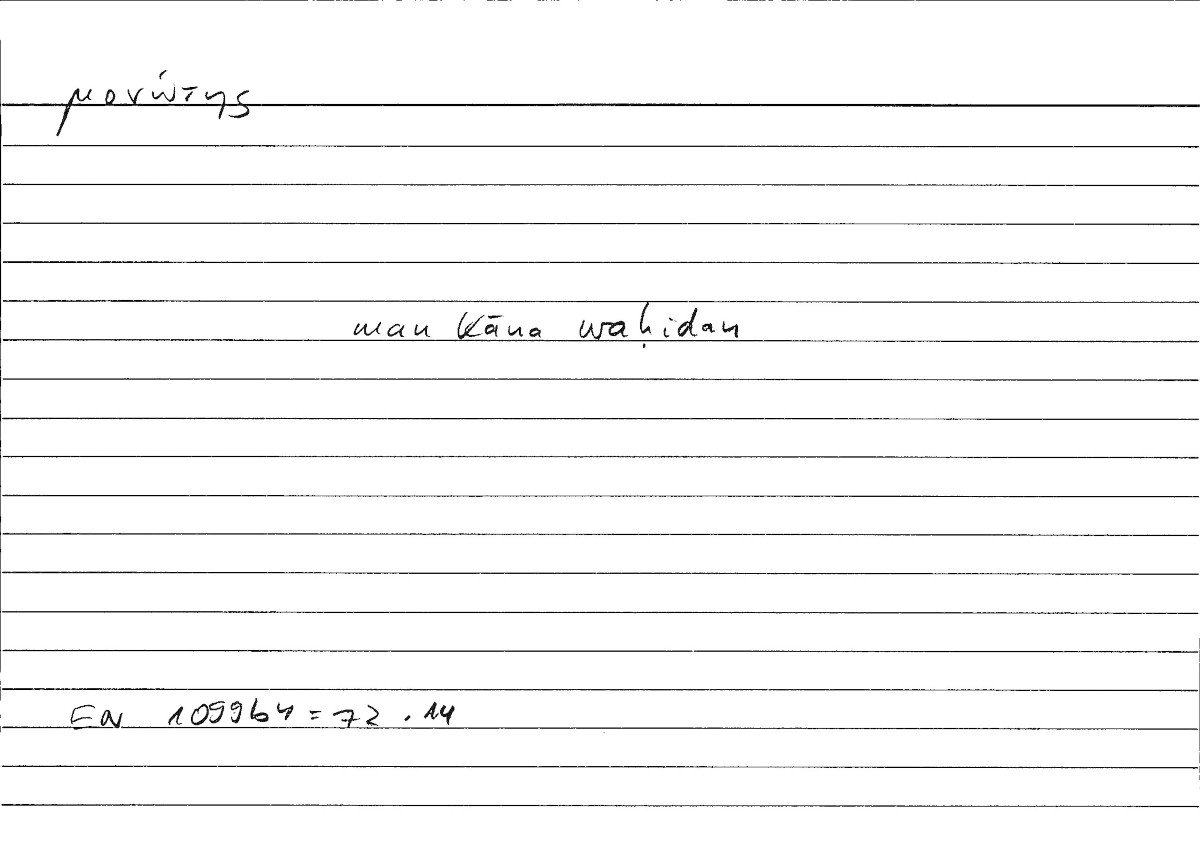 μονώτης
man kāna waḥidan
EN 1099b4 = 72.14